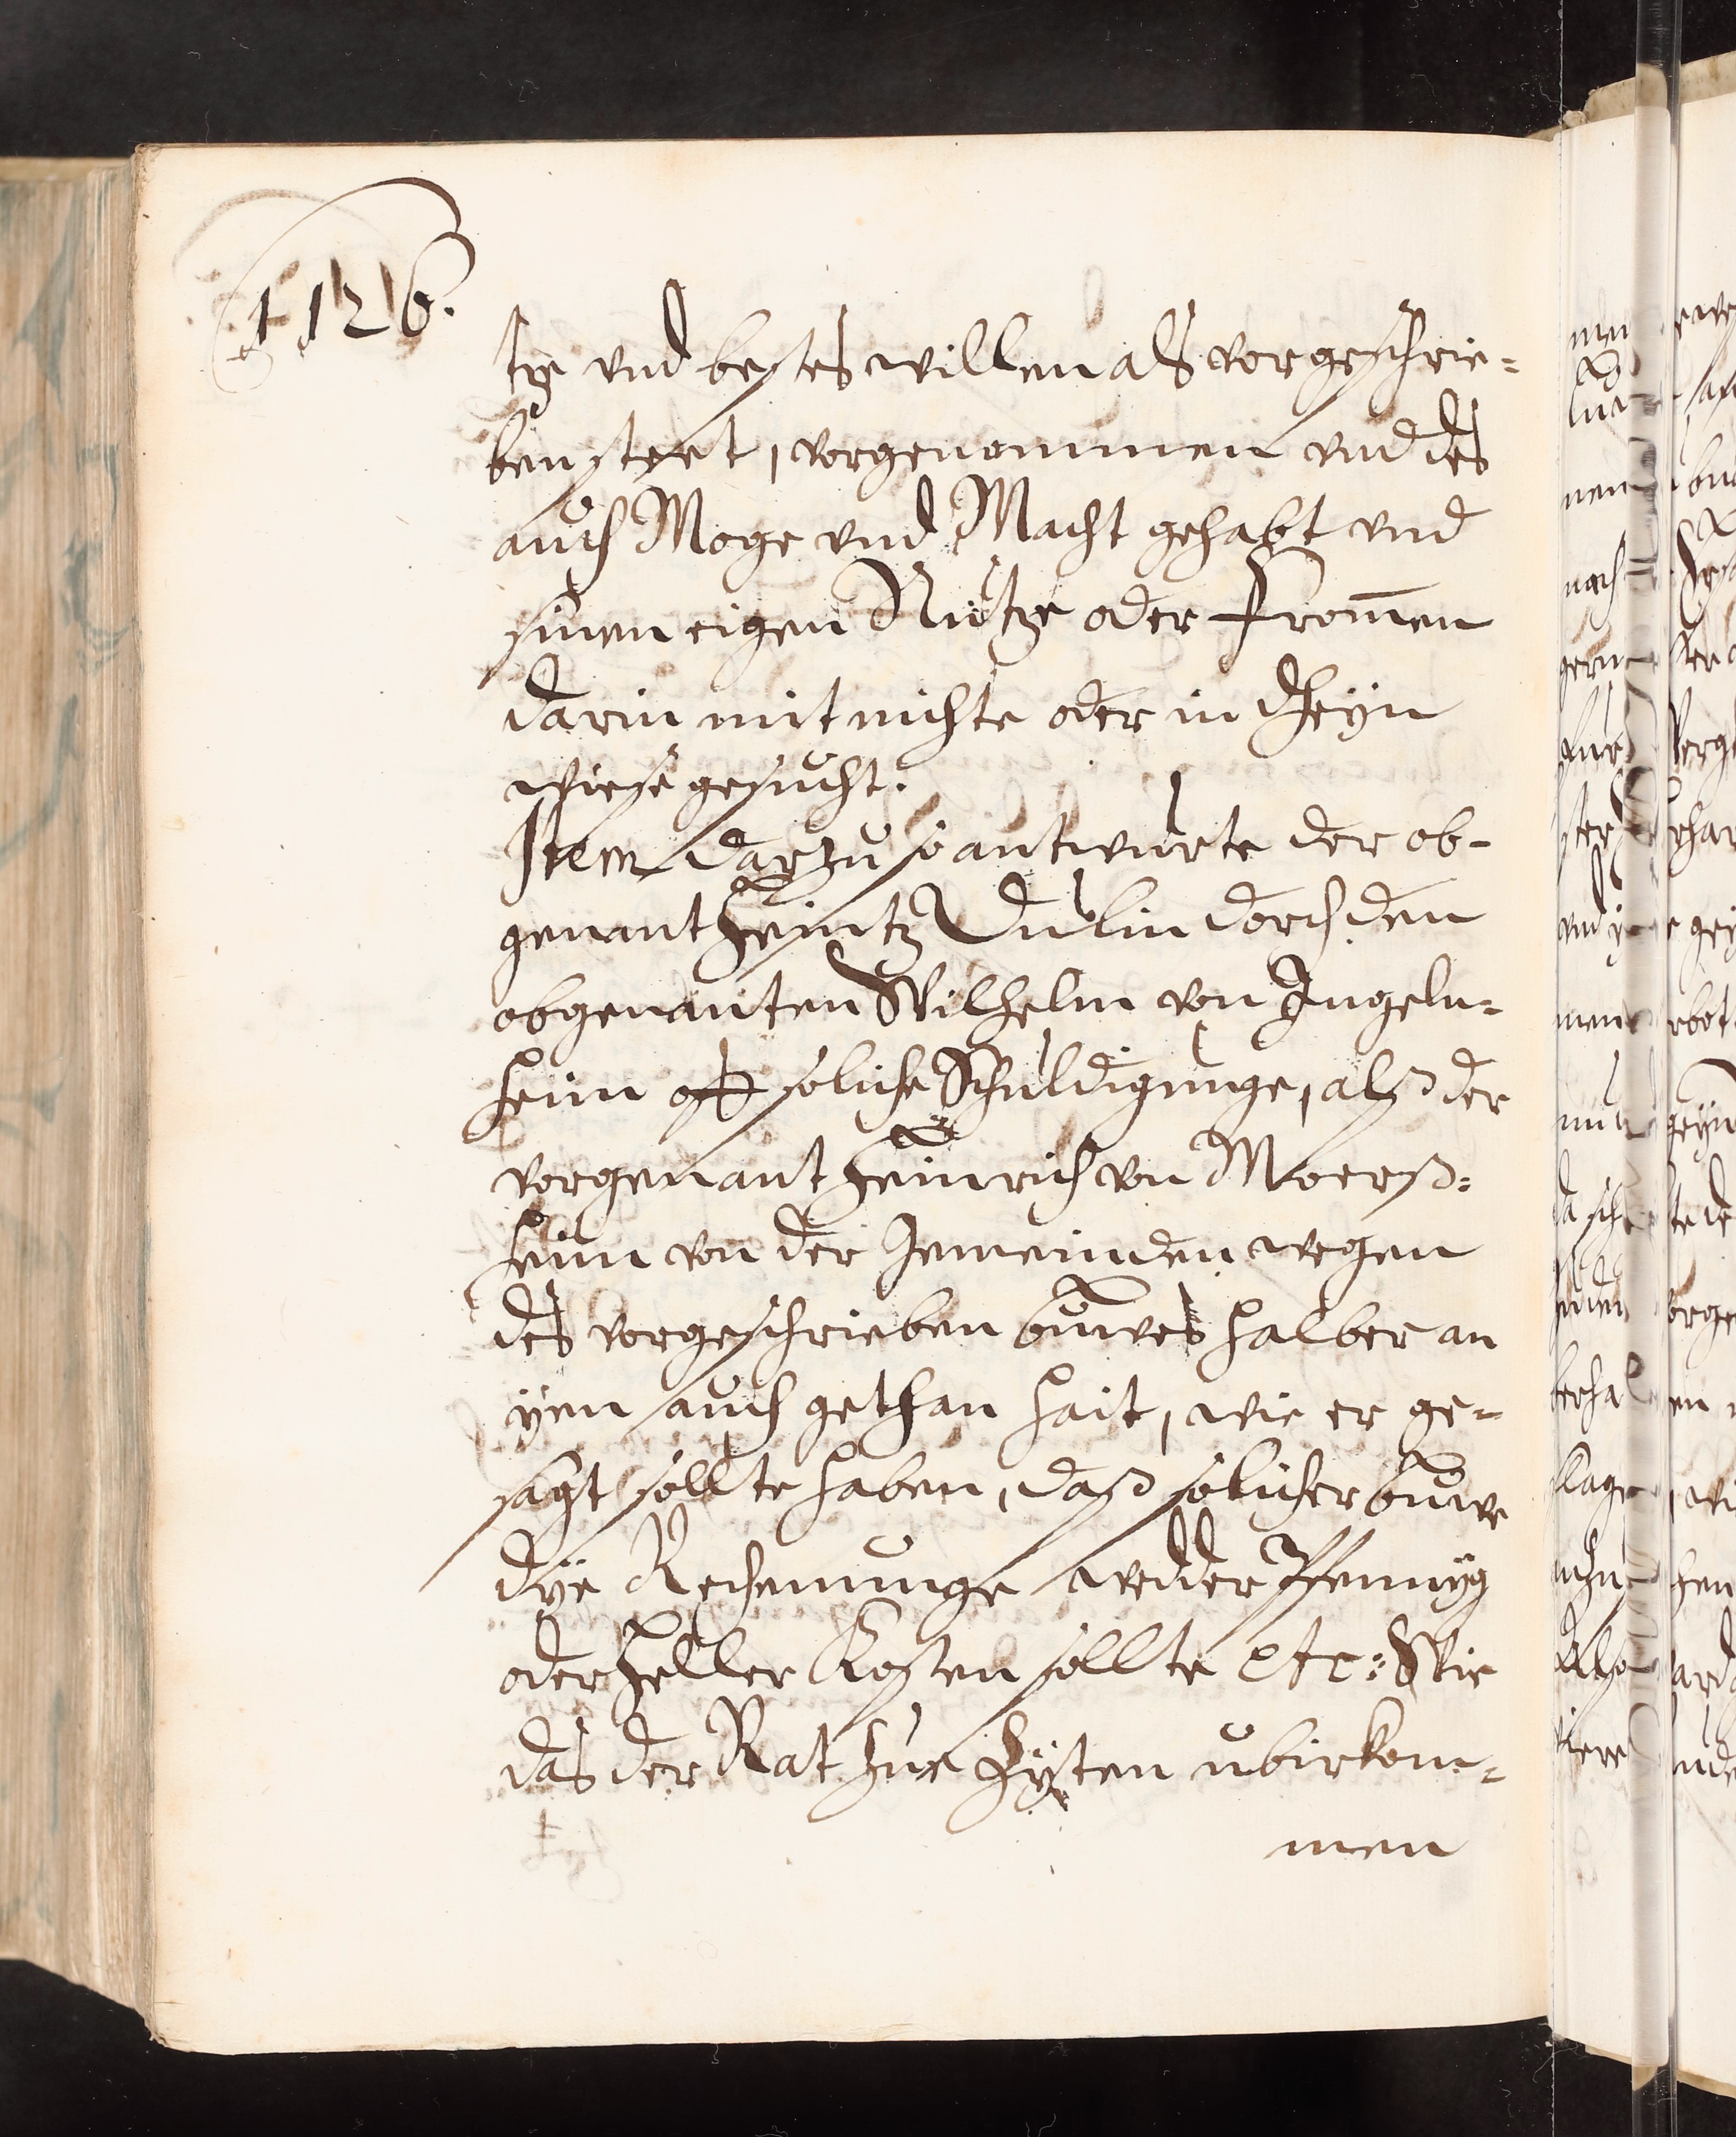 1126.
tze vnd bestes willen als vorgeschrie=
ben steet, vorgenommen vnd des
auch Moge vnd Macht gehabt vnd
sinen eigen Nutze oder From̄en
darin mit nichte oder in dheyn
wiese gesucht.
Item darzu so antwurte der ob-
genant Heintz Dulin dorch den
obgenanten Wilhelm von Ingeln=
heim off soliche Schuldigunge, alß der
vorgenant Heinrich von Moerß=
heim von der Gemeinden wegen
des vorgeschrieben buwes halber an
yen auch gethan hait, wie er ge=
sagt sollte haben, daß solicher buwe
dye Rechenunge wedder Pfennyg
oder Heller Kosten sollte etc: Wie
das der Rat zue Zyten ubirkom=
men